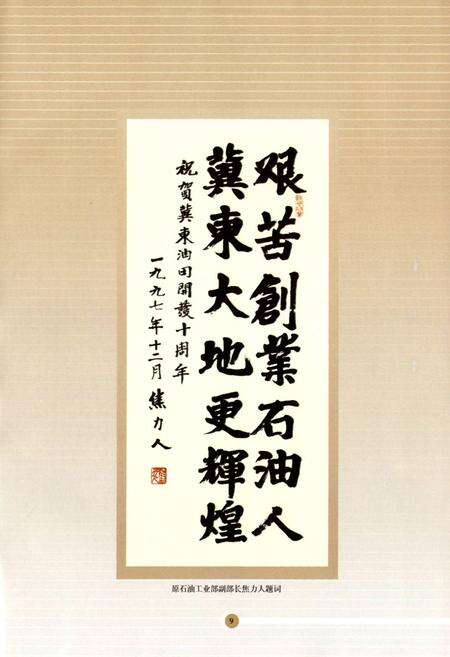 艰苦創業石油人
冀東大地更輝煌
祝賀冀東油田開發十周年
一九九七年十二月 焦力人
原石油工业部副部长焦力人题词
9